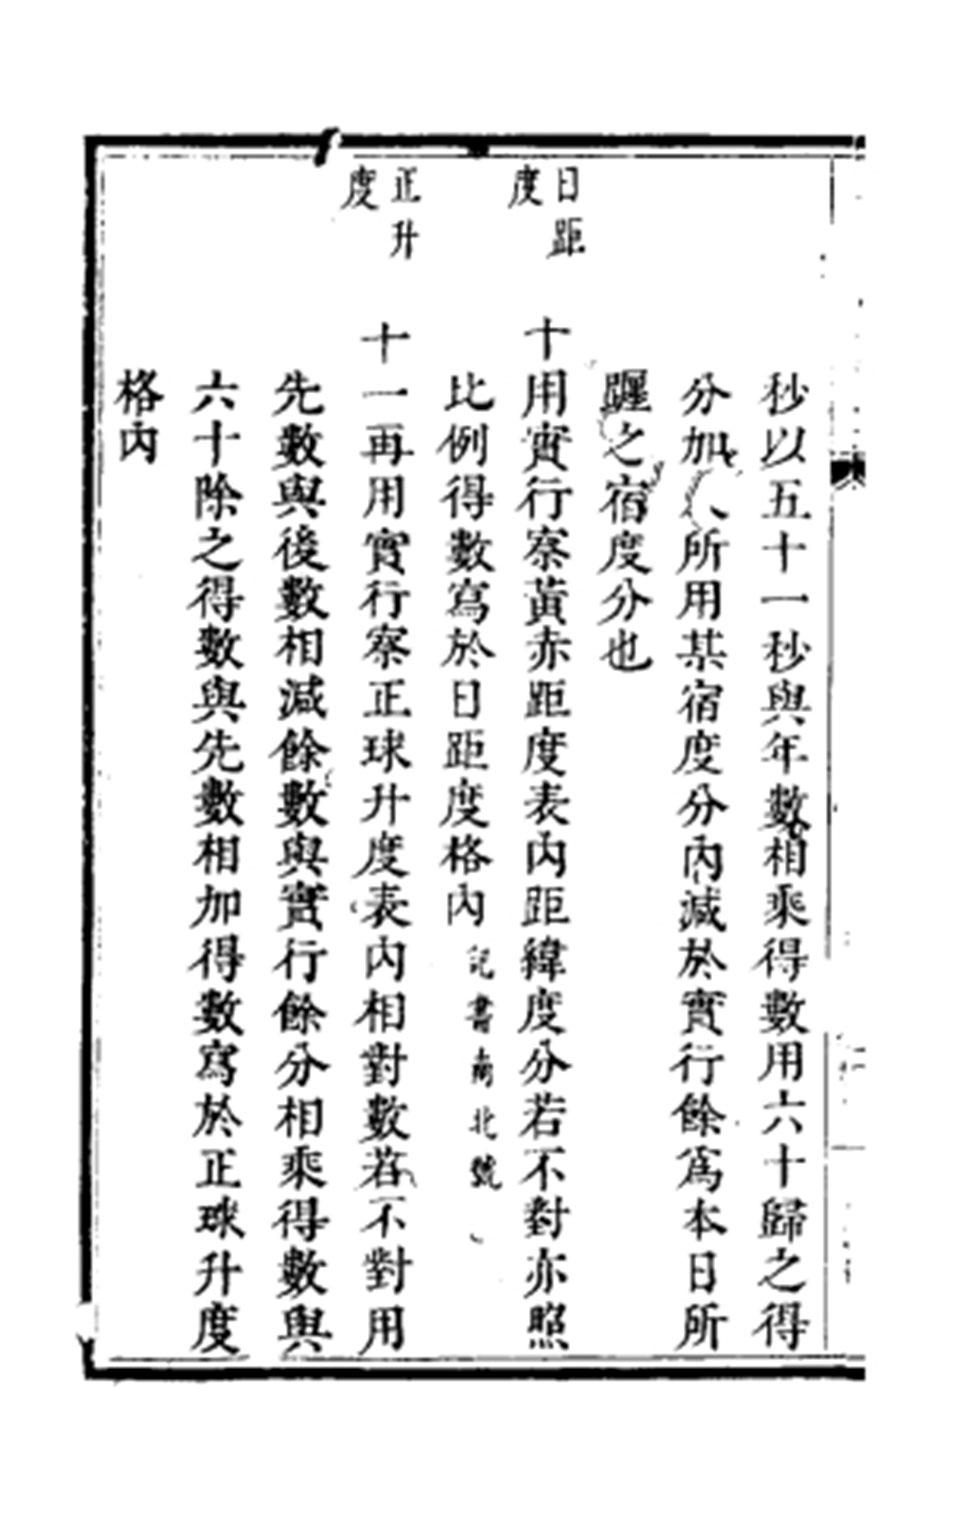 秒以五十一秒與年數相乘得數用六十歸之得
分加入所用某宿度分內減於實行餘為本日所
躔之宿度分也
日距度
十用實行察黃赤距度表內距緯度分若不對亦照
比例得數寫於日距度格內記書南北號
正升度
十一再用實行察正球升度表內相對數若不對用
先數與後數相減餘數與實行餘分相乘得數與
六十除之得數與先數相加得數寫於正球升度
格內